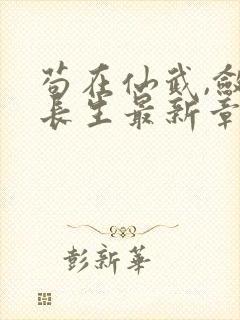 苟在仙武,敛
长生最新章
彭新华